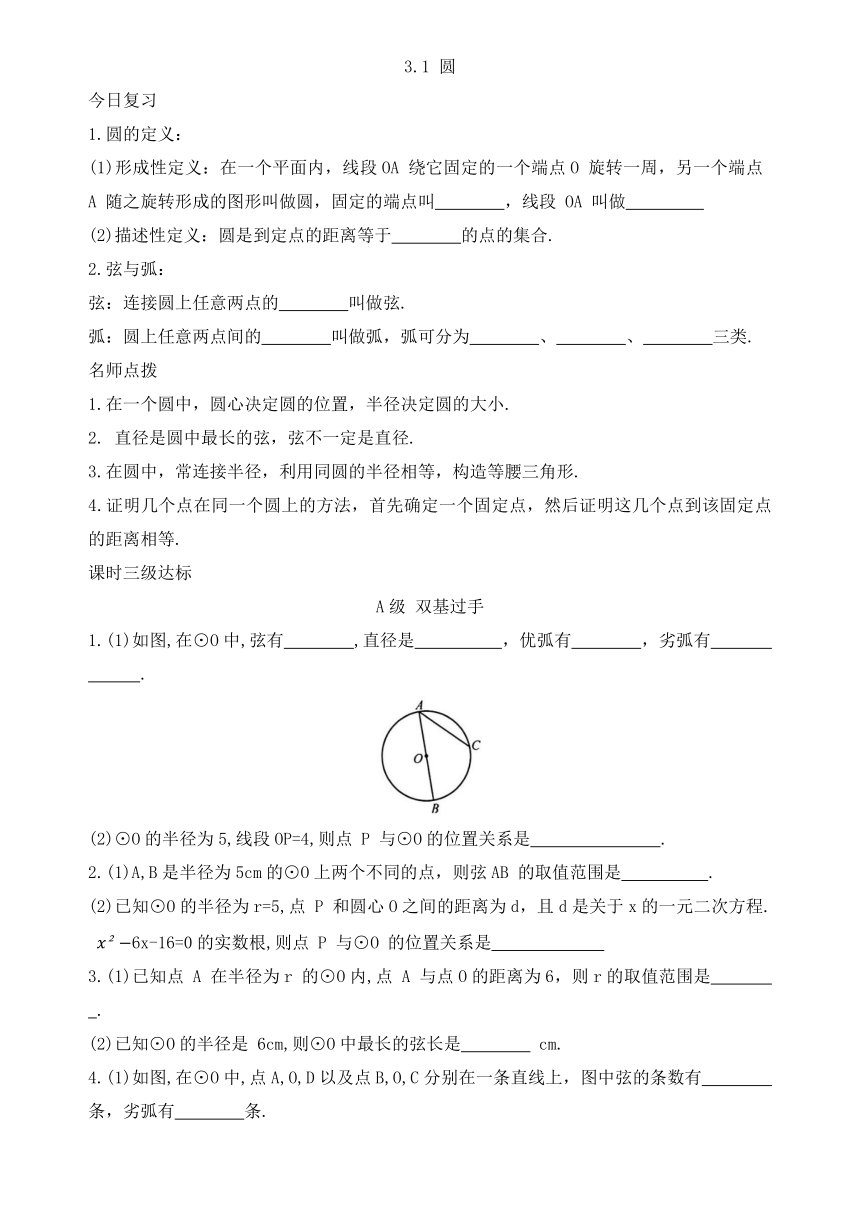 3.1 圆
今日复习
1.圆的定义:
(1)形成性定义:在一个平面内,线段OA 绕它固定的一个端点O 旋转一周,另一个端点
A 随之旋转形成的图形叫做圆,固定的端点叫________,线段 OA 叫做_________
(2)描述性定义:圆是到定点的距离等于________的点的集合.
2.弦与弧:
弦:连接圆上任意两点的________叫做弦.
弧:圆上任意两点间的________叫做弧,弧可分为________、________、________三类.
名师点拨
1.在一个圆中,圆心决定圆的位置,半径决定圆的大小.
2. 直径是圆中最长的弦,弦不一定是直径.
3.在圆中,常连接半径,利用同圆的半径相等,构造等腰三角形.
4.证明几个点在同一个圆上的方法,首先确定一个固定点,然后证明这几个点到该固定点
的距离相等.
课时三级达标
A级 双基过手
1.(1)如图,在⊙O中,弦有________,直径是__________,优弧有________,劣弧有_______
______.
A
C
O
B
(2)⊙O的半径为5,线段OP=4,则点 P 与⊙O的位置关系是_______________.
2.(1)A,B是半径为5cm的⊙O上两个不同的点,则弦AB 的取值范围是__________.
(2)已知⊙O的半径为r=5,点 P 和圆心O之间的距离为d,且d是关于x的一元二次方程.
x²−6x-16=0的实数根,则点 P 与⊙O 的位置关系是_____________
3.(1)已知点 A 在半径为r 的⊙O内,点 A 与点O的距离为6,则r的取值范围是_______
_.
(2)已知⊙O的半径是 6cm,则⊙O中最长的弦长是________ cm.
4.(1)如图,在⊙O中,点A,O,D以及点B,O,C分别在一条直线上,图中弦的条数有________
条,劣弧有________条.